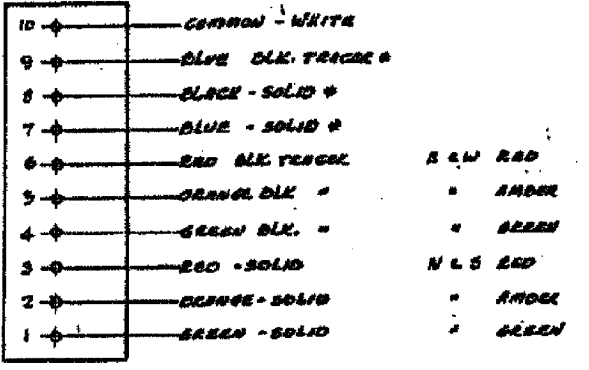 10 COMMON - WHITE
9 BLUE BLK. TRACER *
8 BLACK - SOLID *
7 BLUE - SOLID *
6 RED BLK TRACER E & W RED
5 ORANGE BLK " " AMBER
4 GREEN BLK. " " GREEN
3 RED - SOLID N & S RED
2 ORANGE - SOLID " AMBER
1 GREEN - SOLID " GREEN